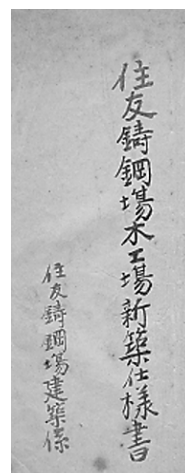 住友鋳鋼場木工場新築仕様書
住友鋳鋼場建築係